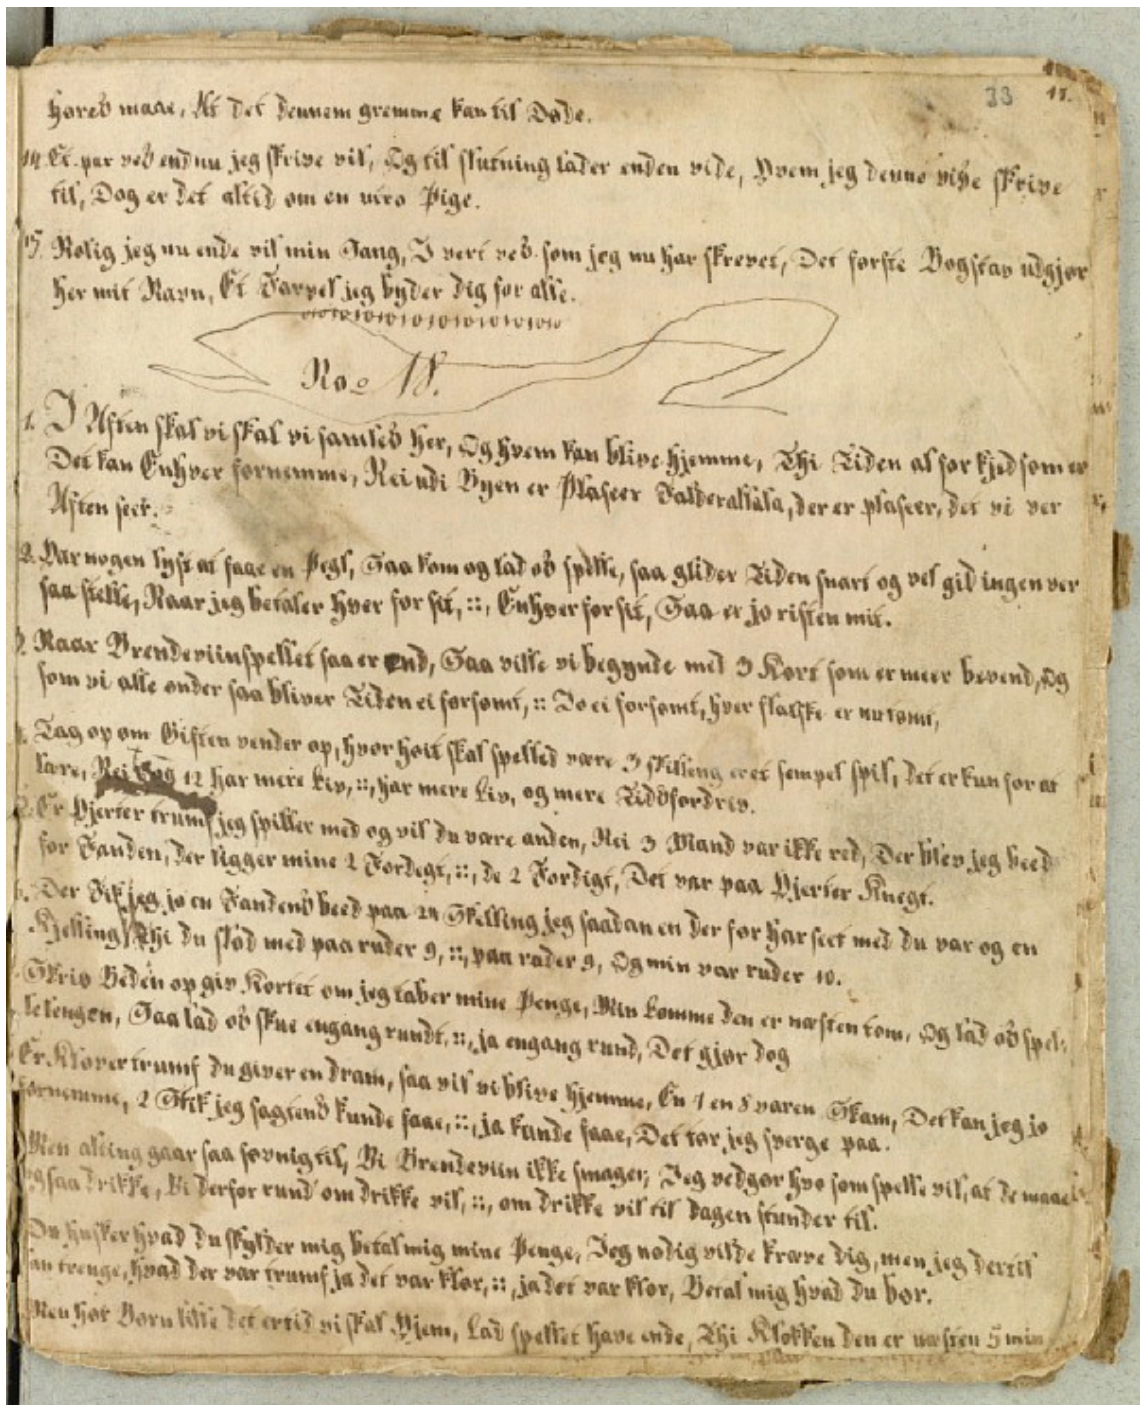 33 17.
høres maae, At det dennem gremme kan til Døde.
14. Et par ves endnu jeg skrive vil, Og til slutning lader enden vide, Hvem jeg denne vise skrive
til, Dog er det altid om en vero Pige.
15. Rolig jeg nu ende vil min Sang, I vert ves som jeg nu har skrevet, Det første Bogstav udgjør
her mit Navn, Et Farvel jeg byder dig for alle.
No 18.
1. I Aften skal vi skal vi samles her, Og hvem kan blive hjemme, Thi Tiden al for kjed som er
Det kan Enhver fornemme, Nei udi Byen er Plaseer Falderallala, der er plaseer, det vi ver
Aften seer.
2. Har nogen lyst at faae en Pegl, Saa kom og lad os spille, saa glider Tiden snart og vel gid ingen ver
saa stelle, Naar jeg betaler hver for sit, ::, Enhver for sit, Saa er jo risten mit.
3. Naar Brendeviinspellet saa er end, Saa ville vi begynde med 3 Kort som er meer bevend, Og
som vi alle onder saa bliver Tiden ei forsømt, :: Jo ei forsømt, hver flaske er nu tømt,
4. Tag op om Giften vender op, hvor høit skal spelled være 3 skilleng er et sempel spil, det er kun for at
lære, Nei Tog 12 har mere Liv, ::, har mere Liv, og mere Tidsfordriv.
5. Er Hjerter trumf jeg spiller med og vil du være anden, Nei 3 Mand var ikke red, Der blev jeg beed
for Fanden, der ligger mine 2 Fordegt, ::, de 2 Fordigt, Det var paa Hjerter Knegt.
6. Der Fik jeg jo en Fandens beed paa 24 Skelling jeg saadan en der før har seet med du var og en
Kjelling Thi du stod med paa ruder 9, ::, paa ruder 9, Og min var ruder 10.
Skriv Beden op giv Kortet om jeg taber mine Penge, Min Lomme den er næsten tom, Og lad os spel:
le lengen, Saa lad os skue engang rundt, ::, ja engang rund, Det gjør dog
Er Kløver trumf du giver en dram, saa vil vi blive hjemme, En 7 en 8 varen Skam, Det kan jeg jo
fornemme, 2 Stik jeg sagtens kunde faae, ::, ja kunde faae, Det tør jeg sverge paa.
Men alting gaar saa søvnig til, Vi Brendeviin ikke smager, Jeg vedgør hvo som spelle vil, at de maae
ogsaa drikke, Vi derfor rund om drikke vil, ::, om drikke vil til dagen stunder til.
Du husker hvad du skylder mig betal mig mine Penge, Jeg nødig vilde kræve dig, men jeg dertil
an trenge, hvad der var trumf ja det var klør, ::, ja det var klør, Betal mig hvad du bør.
Men hør Børn lille det er tid vi skal Hjem, Lad spellet have ende, Thi Klokken den er næsten 5 min